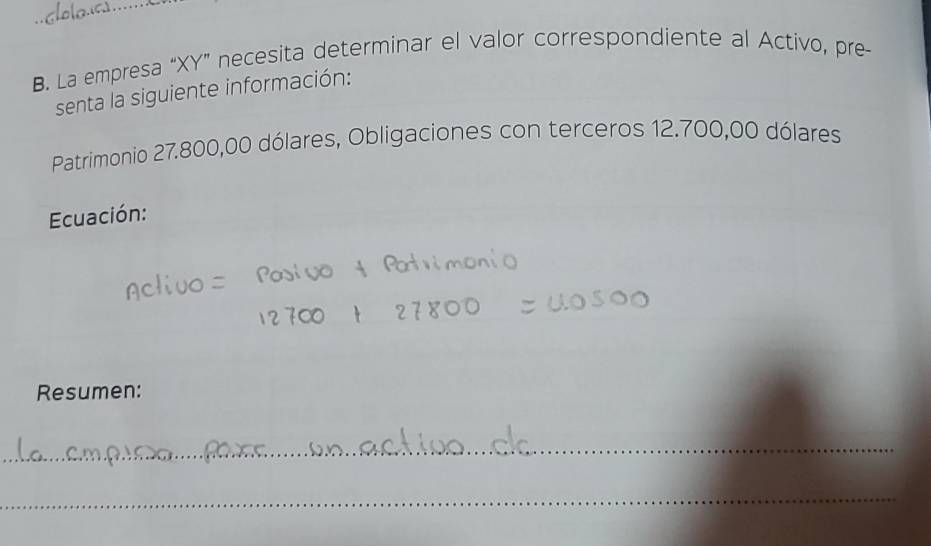 ..dolares.......
B. La empresa “XY” necesita determinar el valor correspondiente al Activo, pre-
senta la siguiente información:
Patrimonio 27.800,00 dólares, Obligaciones con terceros 12.700,00 dólares
Ecuación:
Activo = Pasivo + Patrimonio
12700 + 27800 = 40500
Resumen:
la empresa posee un activo de